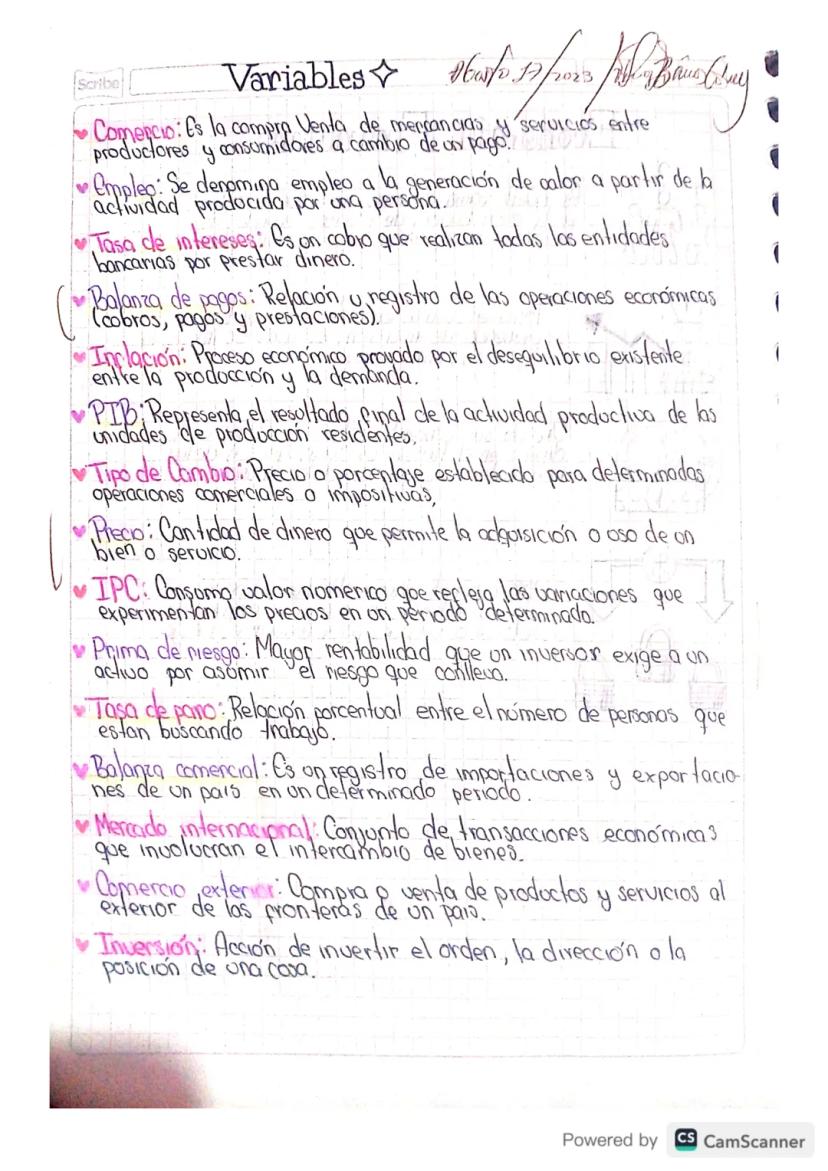 Scribe
Variables
Agosto 17/2023
Comercio: Es la compra Venta de mercancias y servicios entre
productores y consumidores a cambio de un pago.
Empleo: Se denomina empleo a la generación de valor a partir de la
actividad producida por una persona.
Tasa de intereses: Es un cobro que realizan todas las entidades
bancarias por prestar dinero.
Balanza de pagos: Relación y registro de las operaciones económicas
(cobros, pagos y prestaciones).
Inflación: Proceso económico provado por el desequilibrio existente
entre la producción y la demanda.
PIB: Representa el resultado final de la actividad productiva de las
unidades de producción residentes.
Tipo de Cambio: Precio o porcentaje establecido para determinadas
operaciones comerciales o impositivas,
Precio: Cantidad de dinero que permite la adquisición o uso de un
bien o servicio.
IPC: Consumo valor numerico que refleja las variaciones que
experimentan los precios en un periodo determinado.
Prima de riesgo: Mayor rentabilidad que un inversor exige a un
activo por asumir el riesgo que conlleva.
Tasa de paro: Relación porcentual entre el número de personas que
estan buscando trabajo.
Balanza comercial: Es un registro de importaciones y exportacio-
nes de un pais en un determinado periodo.
Mercado internacional: Conjunto de transacciones económicas
que involucran el intercambio de bienes.
Comercio exterior: Compra o venta de productos y servicios al
exterior de las fronteras de un pais.
Inversión: Acción de invertir el orden, la dirección o la
posición de una cosa.
Powered by CS CamScanner